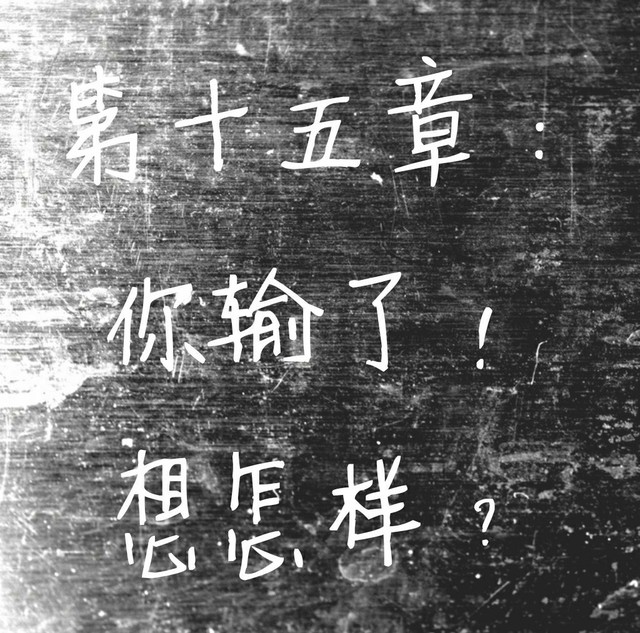 第十五章：
你输了！
想怎样？